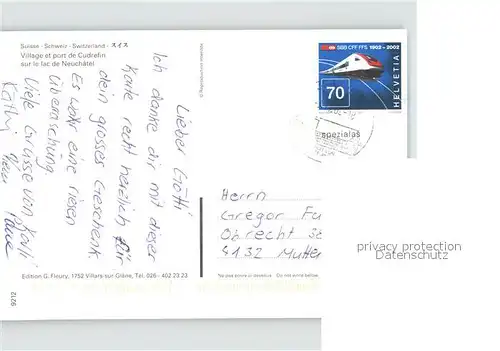 Suisse - Schweiz - Switzerland - 212
Village et port de Cudrefin
sur le lac de Neuchâtel
Lieber Götti
Ich danke dir mit dieser
Karte recht herzlich für
dein grosses Geschenk
Es wahr eine riesen
Überraschung
Viele Grüsse von Kathi
Kathi
Edition G. Fleury, 1752 Villars-sur-Glâne, Tel. 026 - 402 23 23
9212
SBB CFF FFS 1902-2002
70
HELVETIA
spezialas
Herrn
Gregor Fu
Obrecht
4132 Mutten
privacy protection
Datenschutz